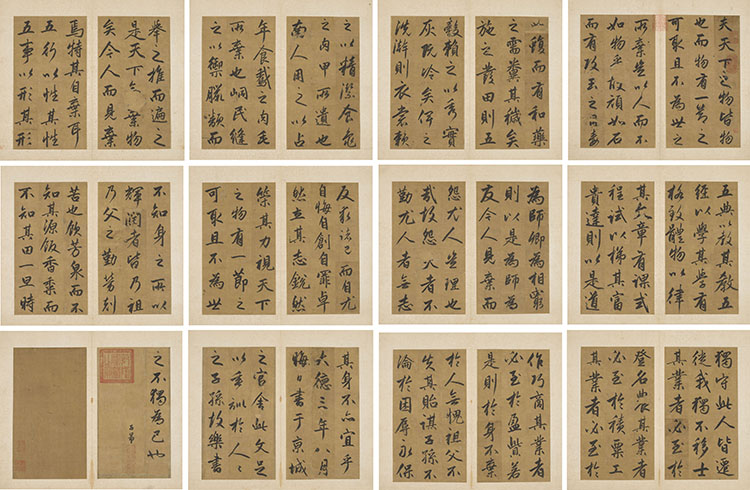 夫天下之物皆物
也而物有一節之
可取且不為世之
所棄豈以人而不
如物乎散頑如石
而有攻玉之用毒
如蝮而有和藥
之需糞其穢矣
施之發田則五
穀賴之以秀實
灰既冷矣俾之
洗澣則衣裳賴
之以精潔食龜
之肉甲所遺也
南人用之以占
年食鵝之肉毛
所棄也峒民縫
之以禦臘類而
舉之推而遍之
是天下无棄物
矣今人而見棄
焉特其自棄耳
五行以性其性
五事以形其形
五典以教其教五
經以學其學有
格致體物以律
其文章有課式
程試以梯其富
貴達則以是道
為師卿為相窮
則以是為師為
友今人見棄而
怨尤人豈理也
哉故怨天者不
勤尤人者無志
反求諸己而自尤
自悔自創自罪卓
然立其志銳然
策其力視天下
之物有一節之
可取且不為世
不知身之所以
輝潤者皆乃祖
乃父之勤勞刻
苦也飲芳泉而不
知其源飯香黍而
不知其由一旦時
獨守此人皆遷
徙我獨不移士
其業者必至於
登名農其業者
必至於積粟工
其業者必至於
作巧商其業者
必至於盈貲若
是則於身不棄
於人無愧祖父不
失其貽謀子孫不
淪於困辱永保
其身不亦宜乎
大德三年八月
晦日書于京城
之官舍此文足
以垂訓於人人
之子孫故樂書
之不獨為己也
子昂